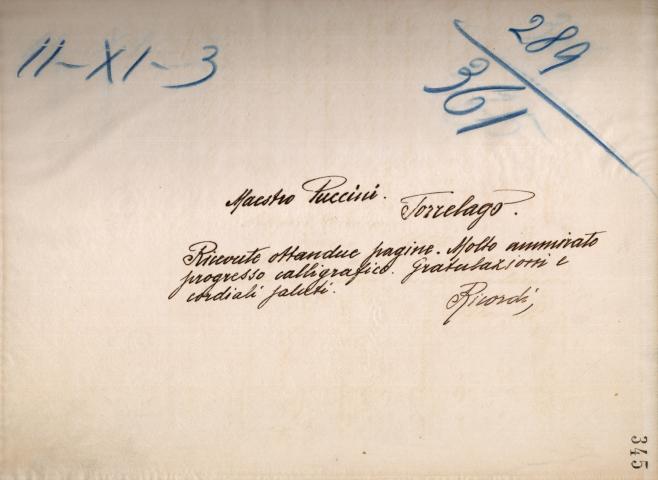 11-XI-3
289
361
Maestro Puccini. Torrelago.
Ricevute ottandue pagine. Molto ammirato
progresso calligrafico. Gratulazioni e
cordiali saluti.
Ricordi,
345